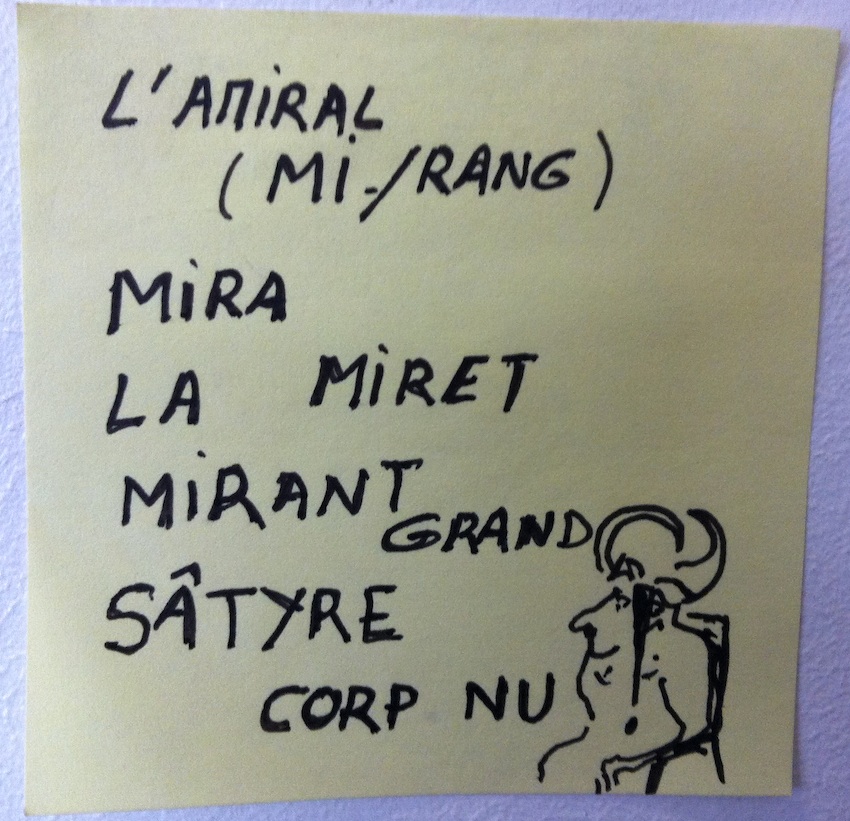 L'AMiRAL
(Mi-/RANG)
MiRA
LA MiRET
MiRANT
GRAND
SÂTYRE
CORP NU